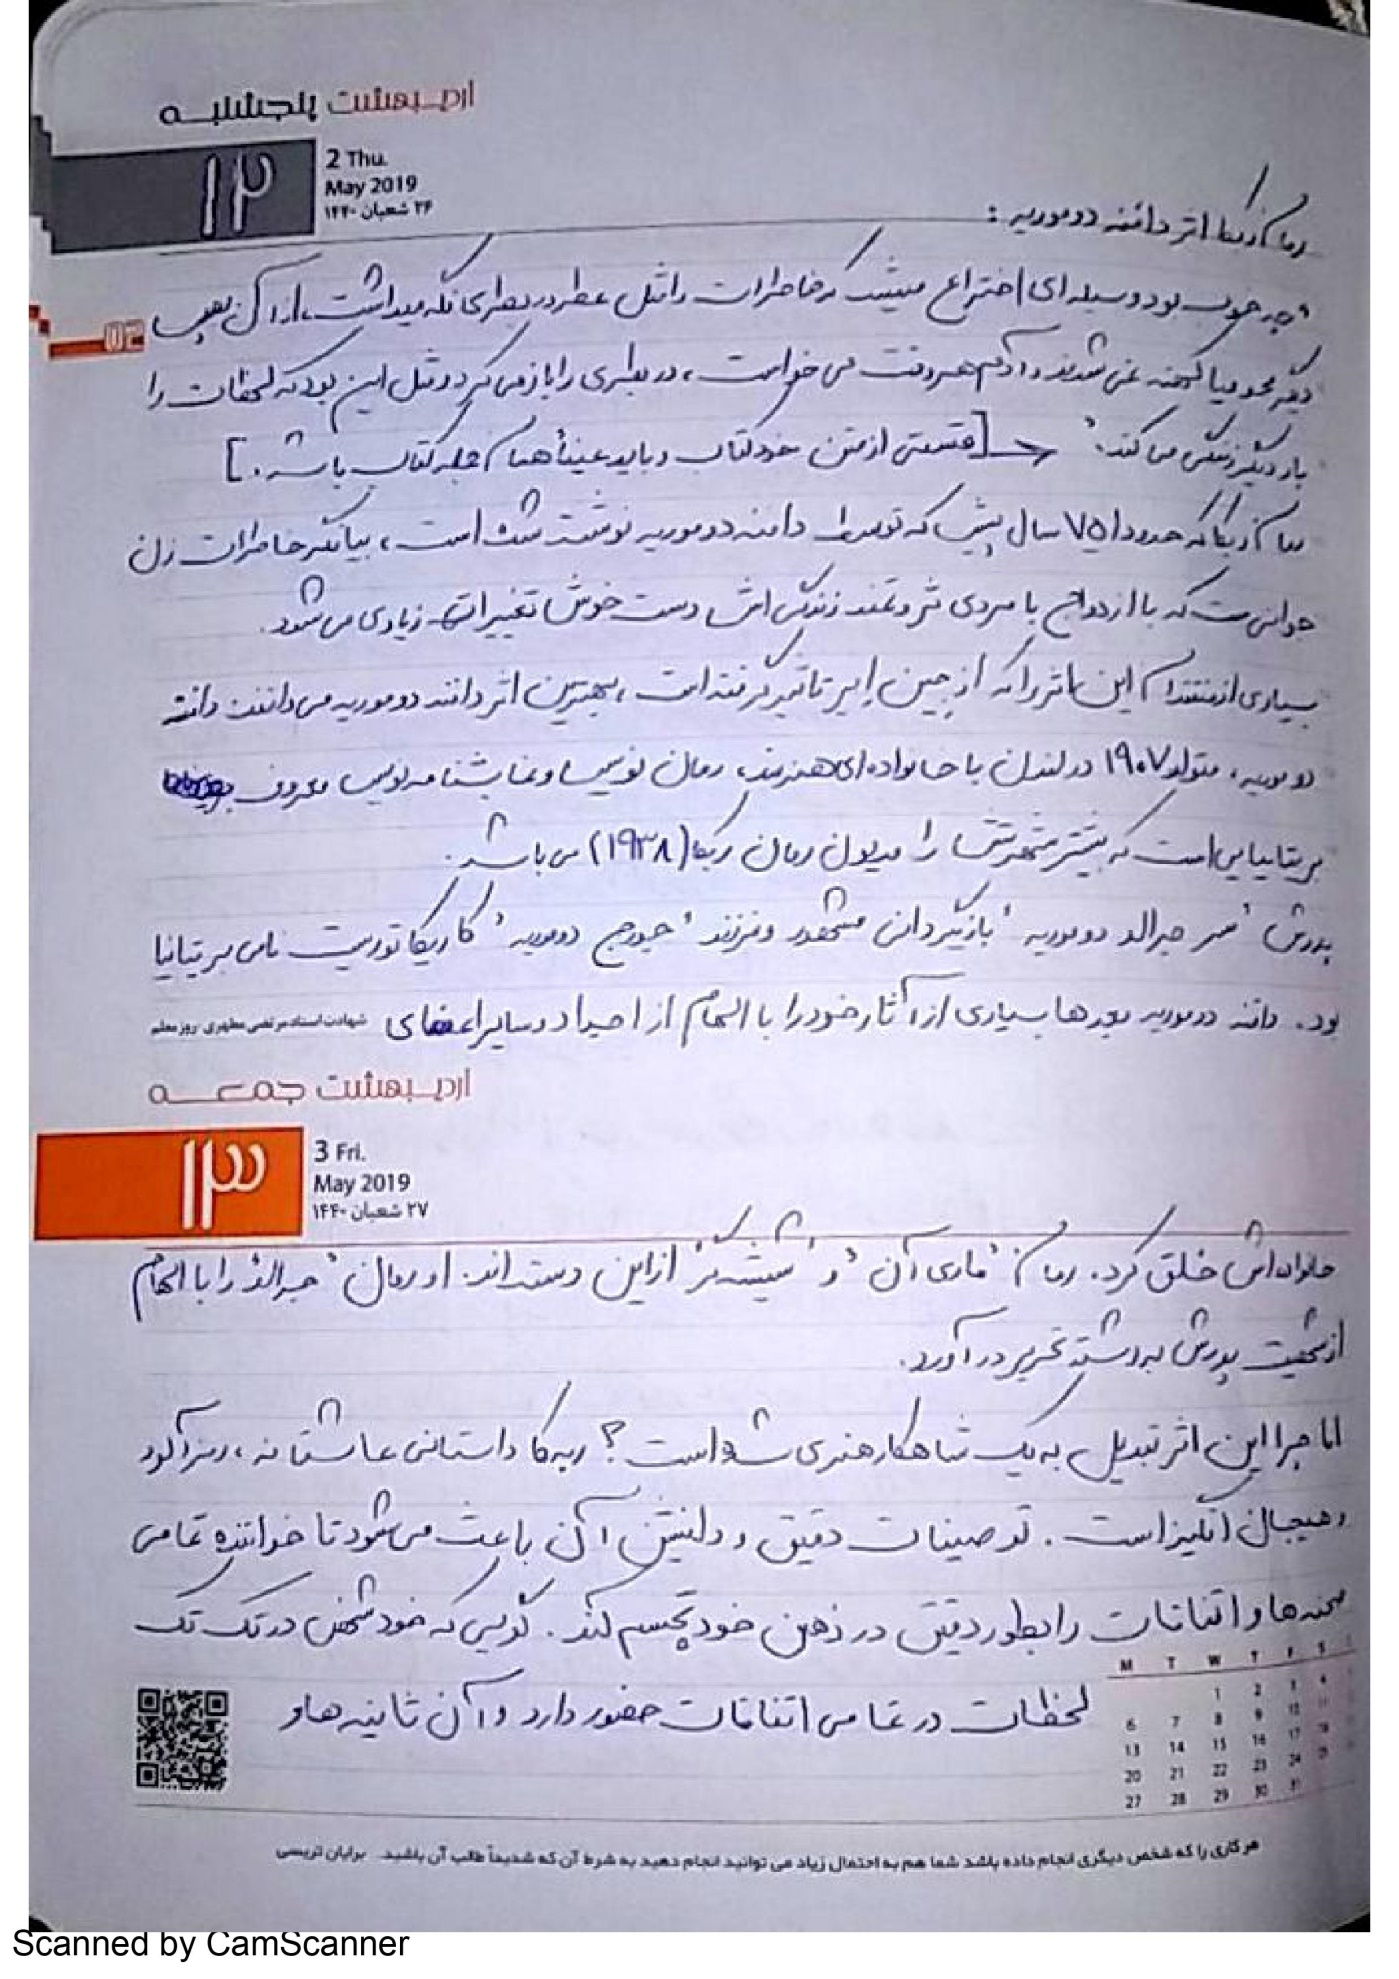 اردیبهشت پنجشنبه
۱۲
2 Thu.
May 2019
۲۶ شعبان ۱۴۴۰
02
رمان ربکا اثر دافنه دوموریه :
"چه خوب بود وسیله ای اختراع میشد که خاطرات را مثل عطر در بطری نگه میداشت، از آن پس
دیگر محو یا کهنه نمی شدند و آدم هر وقت می خواست، در بطری را باز می کرد و مثل این بود که لحظات را
بار دیگر زندگی می کند." → [قسمتی از متن خود کتاب و باید عیناً همان جمله کتاب باشد.]
رمان ربکا که حدودا ۷۵ سال پیش که توسط دافنه دوموریه نوشته شده است، بیانگر خاطرات زن
جوانی ست که با ازدواج با مردی ثروتمند زندگی اش دست خوش تغییرات زیادی می شود.
بسیاری از منتقدان این اثر را که از جین ایر تاثیر گرفته است، بهترین اثر دافنه دوموریه می دانند. دافنه
دوموریه، متولد ۱۹۰۷ در لندن با خانواده ای هنرمند، رمان نویس و نمایشنامه نویس معروف
بریتانیایی است که بیشتر شهرتش را مدیون رمان ربکا (۱۹۳۸) می باشد.
پدرش "سر جرالد دوموریه" بازیگردانی مشهور و فرزند "جورج دوموریه" کاریکاتوریست نامی بریتانیا
بود. دافنه دوموریه بعدها بسیاری از آثار خود را با الهام از اجداد و سایر اعضای
شهادت استاد مرتضی مطهری، روز معلم
اردیبهشت جمعه
۱۳
3 Fri.
May 2019
۲۷ شعبان ۱۴۴۰
خانواده اش خلق کرد. رمان "ماری آن" و "شیشه گر" از این دست اند. او رمان "جرالد" را با الهام
از شخصیت پدرش به رشته تحریر در آورد.
اما چرا این اثر تبدیل به یک شاهکار هنری شده است؟ ربه کا داستانی عاشقانه، رمزآلود
و هیجان انگیز است. توصیفات دقیق و دلنشین آن باعث می شود تا خواننده تمامی
صحنه ها و اتفاقات را بطور دقیق در ذهن خود تجسم کند. گویی که خود شخص در تک تک
لحظات در تمامی اتفاقات حضور دارد و آن ثانیه ها و
M T W T F S
1 2 3 4
6 7 8 9 10 11
13 14 15 16 17 18
20 21 22 23 24 25
27 28 29 30 31
هر کاری را که شخص دیگری انجام داده باشد شما هم به احتمال زیاد می توانید انجام دهید به شرط آن که شدیداً طالب آن باشید. برایان تریسی
Scanned by CamScanner